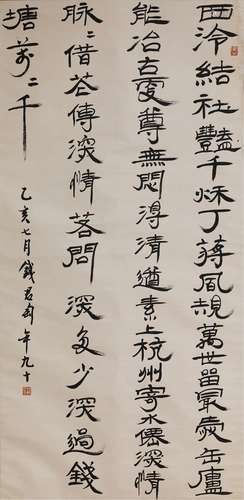 西泠結社豔千秌丁蔣風規萬世留最愛缶廬
能冶古夐尊無悶得清遒素上杭州寄水僊深情
脉二借花傳深情若問深多少深過錢
塘萬二千
乙亥七月錢君匋年九十